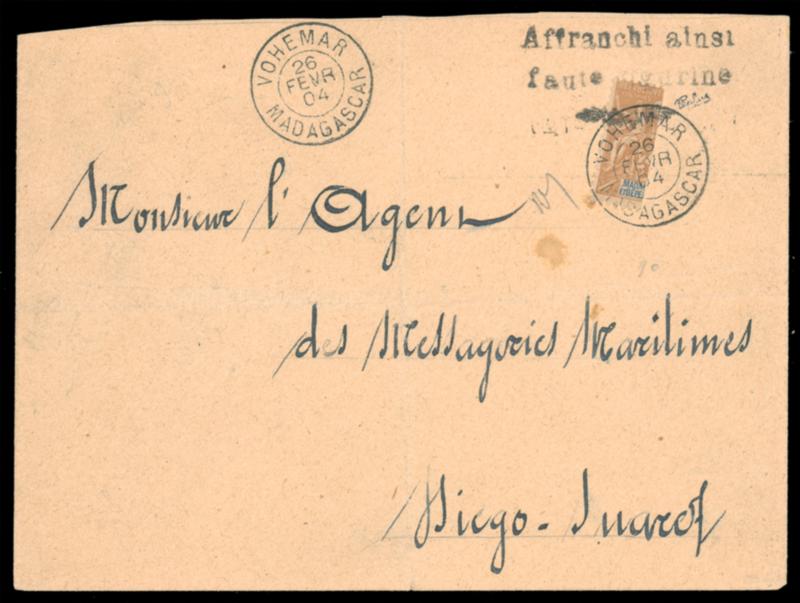 VOHEMAR
26
FEVR
04
MADAGASCAR
Affranchi ainsi
faute figurine
VOHEMAR
26
FEVR
04
MADAGASCAR
Monsieur l'Agent
des Messageries Maritimes
Diego-Suarez